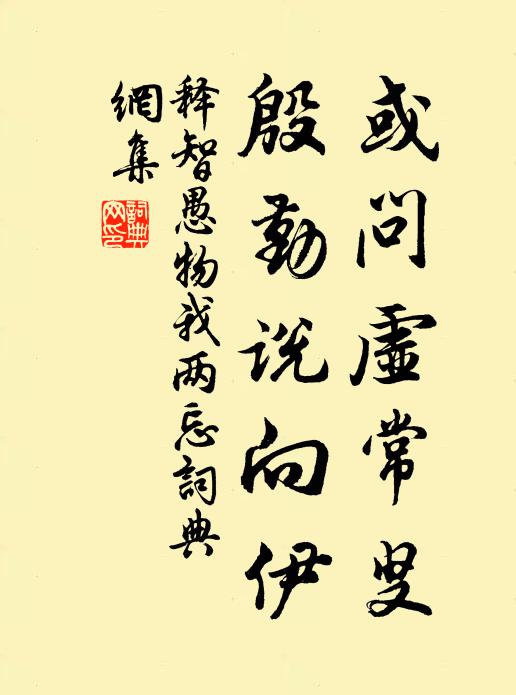 或问虚常叟
殷勤说向伊
释智愚物我两忘詞典
網集
詞典
网印